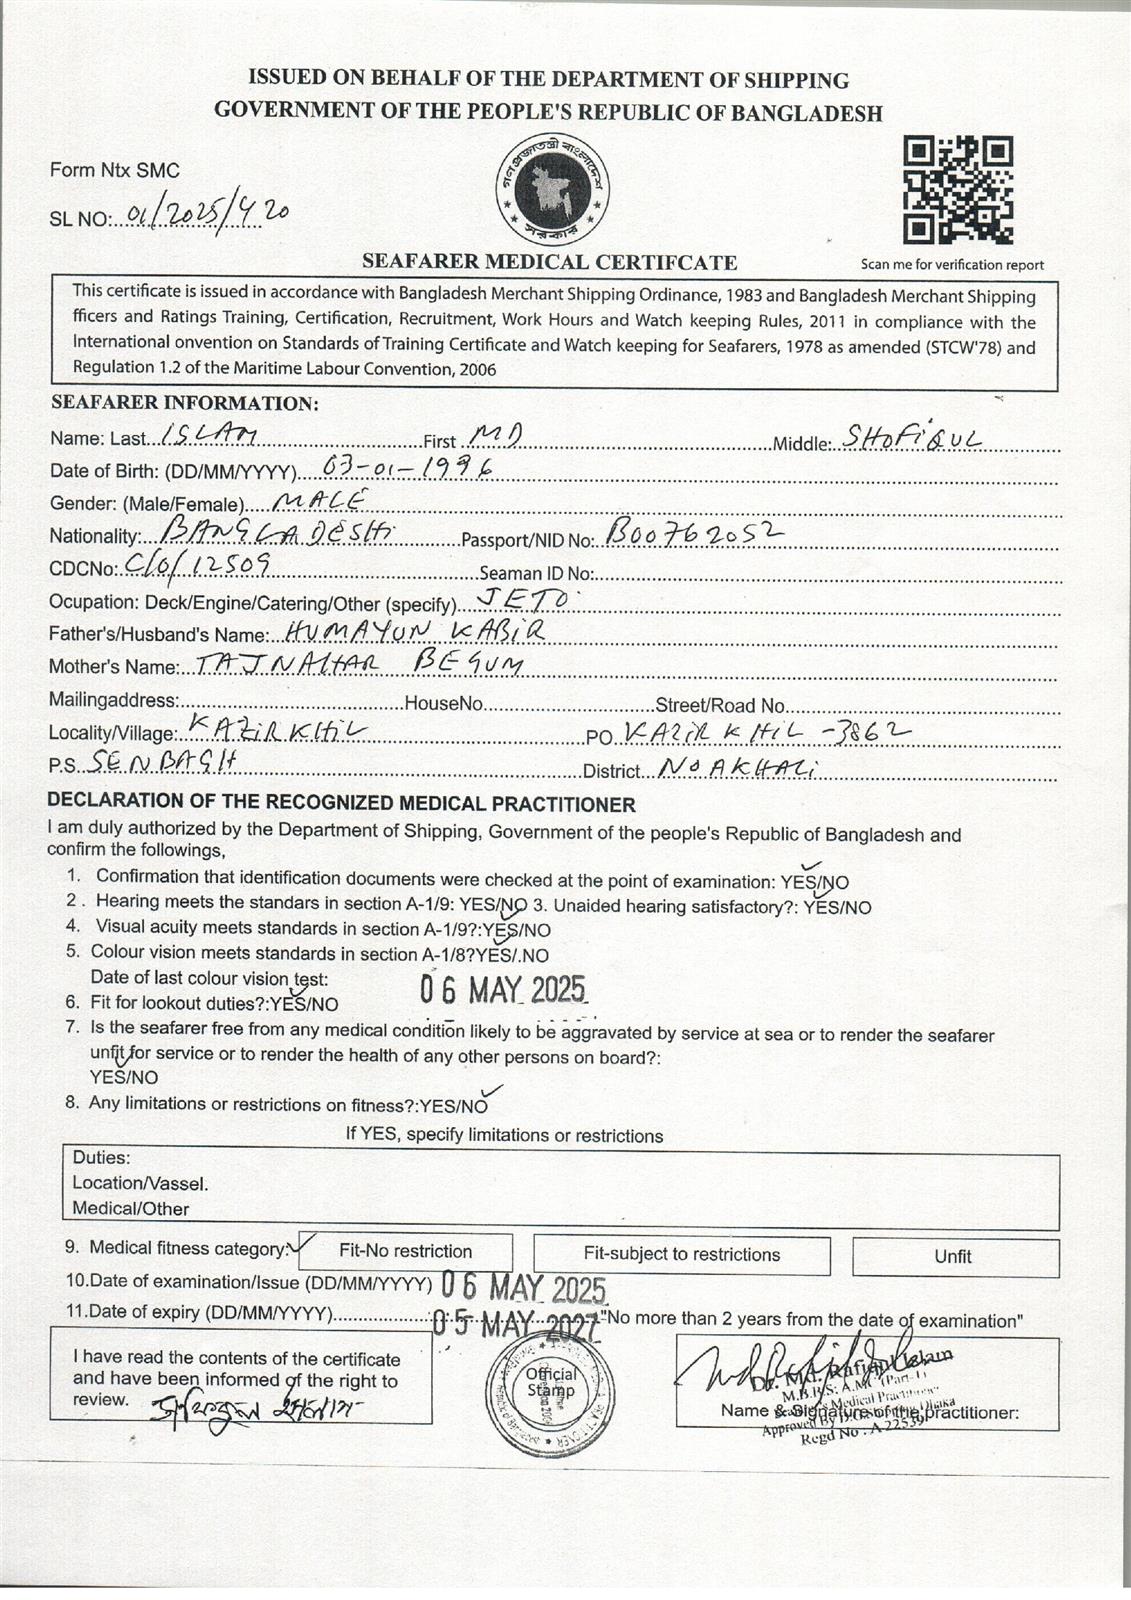 ISSUED ON BEHALF OF THE DEPARTMENT OF SHIPPING
GOVERNMENT OF THE PEOPLE'S REPUBLIC OF BANGLADESH
গণপ্রজাতন্ত্রী বাংলাদেশ
সরকার
Form Ntx SMC
SL NO: 01/2025/420
SEAFARER MEDICAL CERTIFCATE
Scan me for verification report
This certificate is issued in accordance with Bangladesh Merchant Shipping Ordinance, 1983 and Bangladesh Merchant Shipping
fficers and Ratings Training, Certification, Recruitment, Work Hours and Watch keeping Rules, 2011 in compliance with the
International onvention on Standards of Training Certificate and Watch keeping for Seafarers, 1978 as amended (STCW'78) and
Regulation 1.2 of the Maritime Labour Convention, 2006
SEAFARER INFORMATION:
Name: Last ISLAM First MD Middle: SHOFIQUL
Date of Birth: (DD/MM/YYYY) 03-01-1996
Gender: (Male/Female) MALE
Nationality: BANGLADESHI Passport/NID No: B00762052
CDCNo: C/O/12509 Seaman ID No:
Ocupation: Deck/Engine/Catering/Other (specify) JETO
Father's/Husband's Name: HUMAYUN KABIR
Mother's Name: TAJNAHAR BEGUM
Mailingaddress: HouseNo Street/Road No
Locality/Village: KAZIRKHIL PO KAZIRKHIL -3862
P.S. SENBAGH District NOAKHALI
DECLARATION OF THE RECOGNIZED MEDICAL PRACTITIONER
I am duly authorized by the Department of Shipping, Government of the people's Republic of Bangladesh and
confirm the followings,
1. Confirmation that identification documents were checked at the point of examination: YES/NO
2 . Hearing meets the standars in section A-1/9: YES/NO 3. Unaided hearing satisfactory?: YES/NO
4. Visual acuity meets standards in section A-1/9?:YES/NO
5. Colour vision meets standards in section A-1/8?YES/.NO
Date of last colour vision test: 06 MAY 2025
6. Fit for lookout duties?:YES/NO
7. Is the seafarer free from any medical condition likely to be aggravated by service at sea or to render the seafarer
unfit for service or to render the health of any other persons on board?:
YES/NO
8. Any limitations or restrictions on fitness?:YES/NO
If YES, specify limitations or restrictions
Duties:
Location/Vassel.
Medical/Other
9. Medical fitness category: Fit-No restriction Fit-subject to restrictions Unfit
10.Date of examination/Issue (DD/MM/YYYY) 06 MAY 2025
11.Date of expiry (DD/MM/YYYY) 05 MAY 2027 "No more than 2 years from the date of examination"
I have read the contents of the certificate
and have been informed of the right to
review.
Official
Stamp
Dr. Md. Rafiqul Islam
M.B.B.S: A.MC (Part-1)
Name & Signature of the practitioner:
Regd No : A 22539